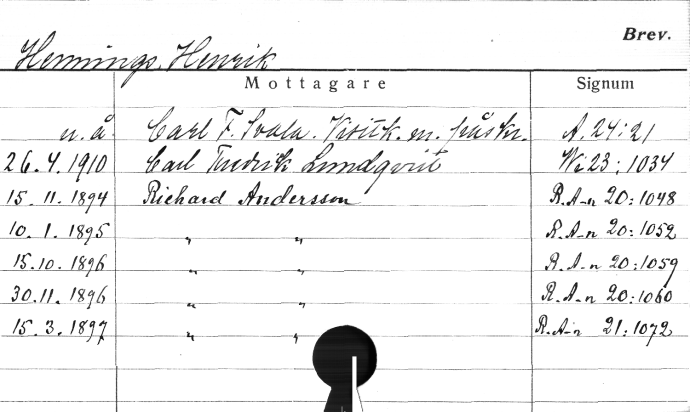 Brev.
Hennings, Henrik
Mottagare Signum
u.å. Carl F. Svala. Visitk. m. påskr. A. 24:21
26.4.1910 Carl Fredrik Lundqvist Wi 23:1034
15.11.1894 Richard Andersson R.A-n 20:1048
10.1.1895 " " R.A-n 20:1052
15.10.1896 " " R.A-n 20:1059
30.11.1896 " " R.A-n 20:1060
15.3.1897 " " R.A-n 21:1072